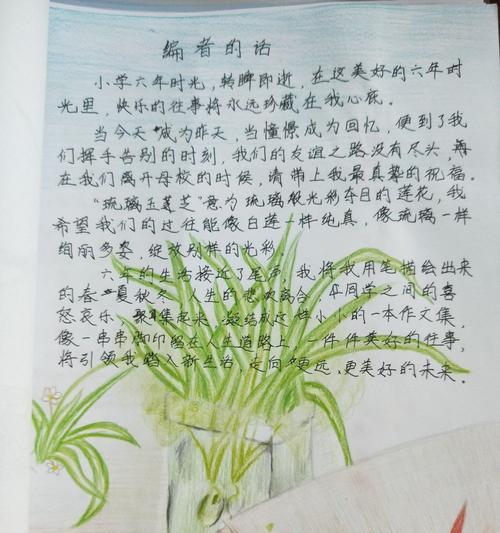 编者的话
小学六年时光，转眸即逝，在这美好的六年时
光里，快乐的往事将永远珍藏在我心底。
当今天成为昨天，当憧憬成为回忆，便到了我
们挥手告别的时刻，我们的友谊之路没有尽头，每
在我们离开母校的时候，请带上我最真挚的祝福。
“琉璃玉莲芝”意为琉璃般光彩夺目的莲花，我
希望我们的过往能像白莲一样纯真，像琉璃一样
绚丽多姿，绽放别样的光彩。
六年的生活接近了尾声，我将我用笔描绘出来
的春夏秋冬、人生的悲欢离合，在同学之间的喜
怒哀乐，聚集起来，凝结成这件小小的一本作文集，
像一串串脚印留在人生道路上，一件件美好的往事，
将引领我踏入新生活，走向更远、更美好的未来。